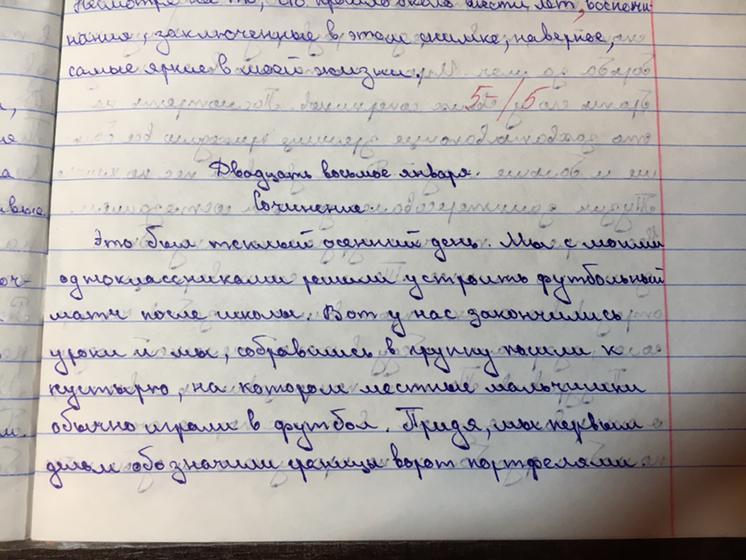 Несмотря на то, что прошло около шести лет, воспоми-
нания, заключенные в этом снимке, наверное,
самые яркие в моей жизни.
5-/5
Двадцать восьмое января.
Сочинение.
Это был теплый осенний день. Мы с моими
одноклассниками решили устроить футбольный
матч после школы. Вот у нас закончились
уроки и мы, собравшись в группу пошли к
пустырю, на котором местные мальчишки
обычно играли в футбол. Придя, мы первым
делом обозначили границы ворот портфелями